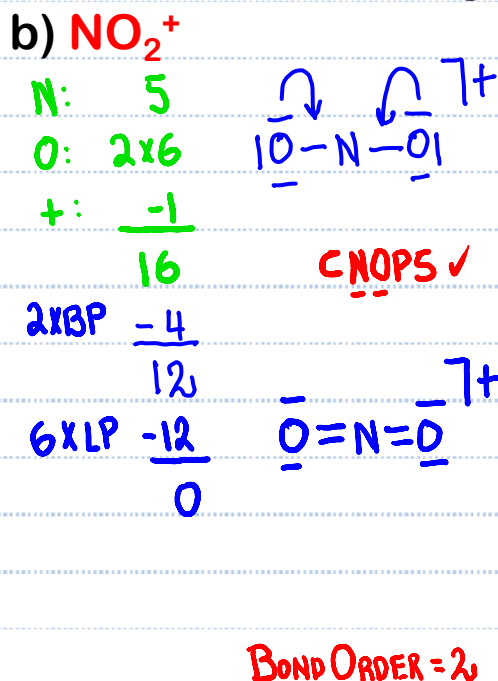 b) NO₂⁺
N: 5
O: 2x6
+: -1
16
2xBP -4
12
6xLP -12
0
|O-N-O| ⁊+
CNOPS ✓
O=N=O ⁊+
BOND ORDER = 2